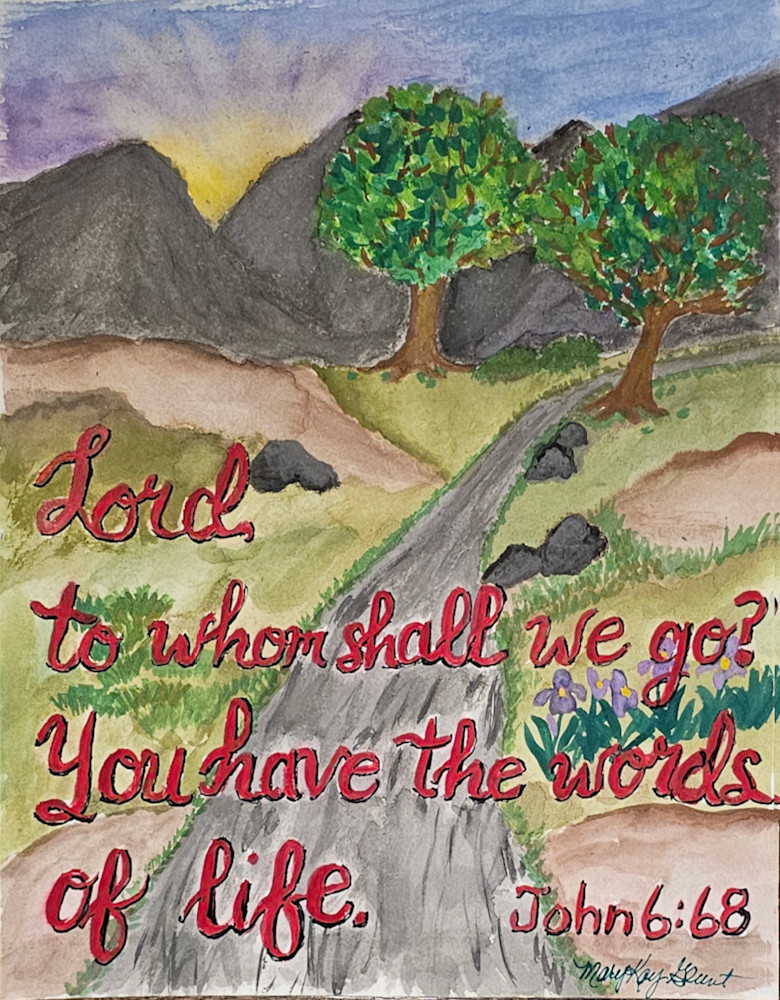 Lord,
to whom shall we go?
You have the words
of life.
John 6:68